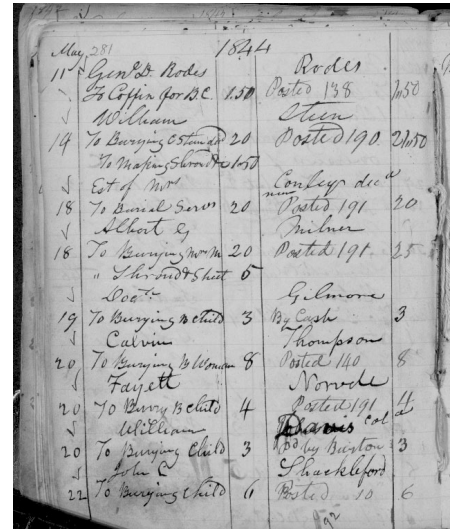 May 281 1844
11 Genl D. Rodes Rodes
To Coffin for B.C. 1.50 Posted 138 1.50
William
19 To Burying 20 Posted 190 21.50
To Making Shroud 1.50
Est of Mrs Conleys decd
18 To Burial Servs 20 Posted 191 20
Albert G Milner
18 To Burying Mr M 20 Posted 191 25
" Shroud & Sheet 5
Doctr Gilmore
19 To Burying B Child 3 By Cash 3
Calvin Thompson
20 To Burying B Woman 8 Posted 140 8
Fayett
20 To Burry B Child 4 Posted 191 4
William cold
20 To Burying Child 3 Pd by Burton 3
John C Shackleford
22 To Burying Child 6 Posted 10 6
92